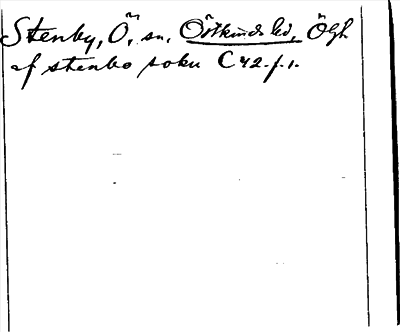 Stenby, Ö, sn, Östkinds hd, Ögh
af stenbo sokn C 42. f. 1.